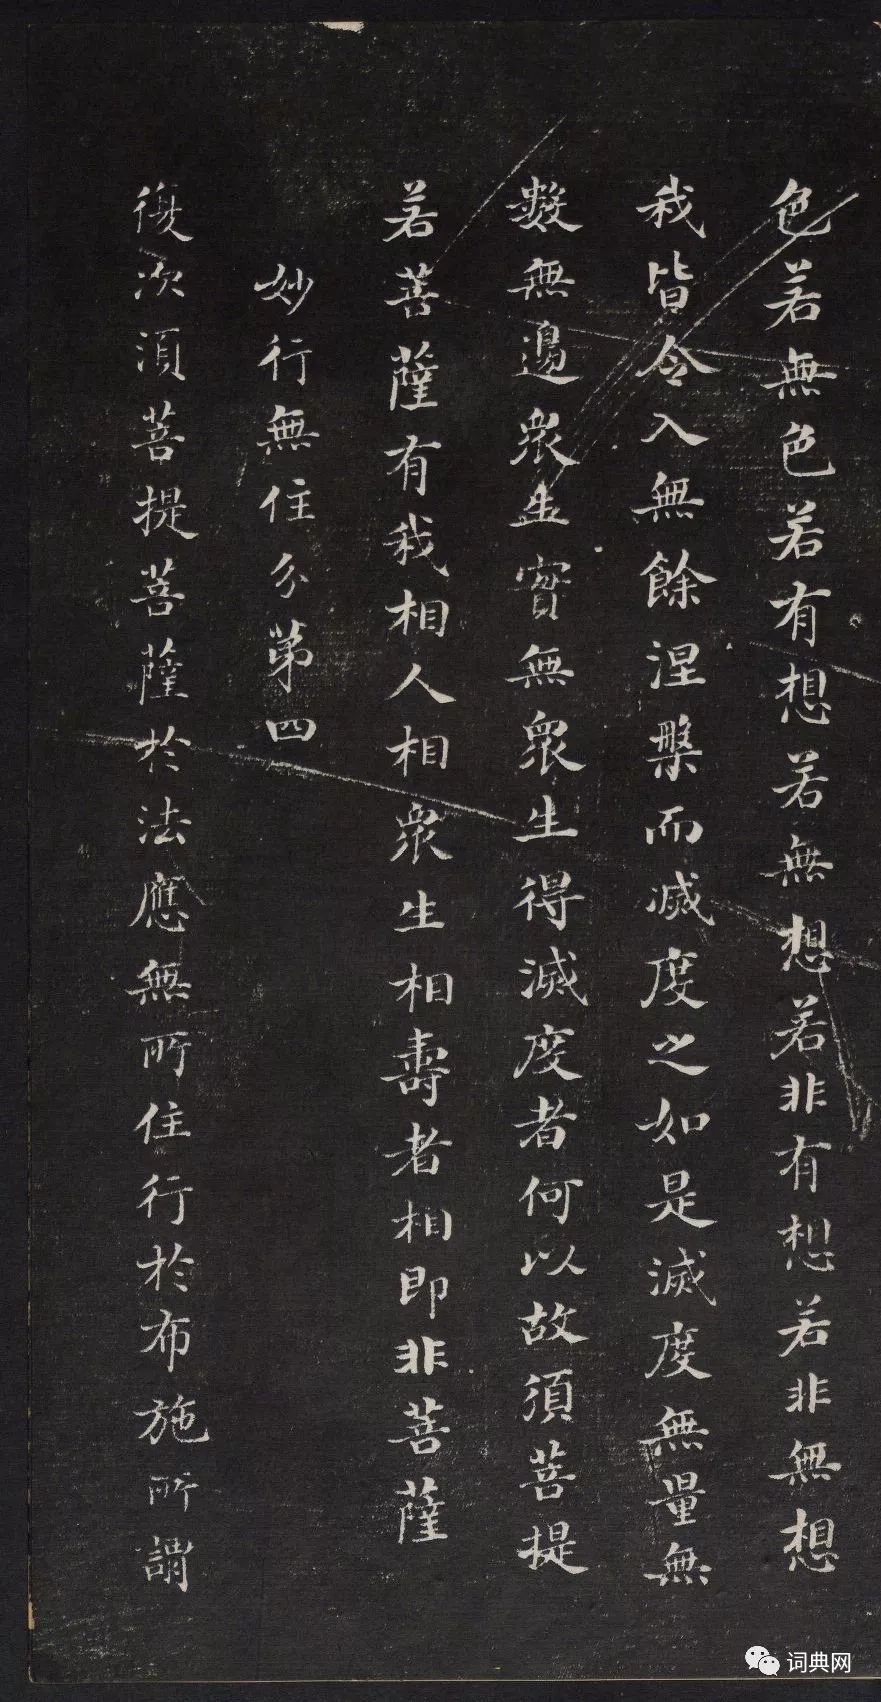 色若無色若有想若無想若非有想若非無想
我皆令入無餘涅槃而滅度之如是滅度無量無
數無邊衆生實無衆生得滅度者何以故須菩提
若菩薩有我相人相衆生相壽者相即非菩薩
妙行無住分第四
復次須菩提菩薩於法應無所住行於布施所謂
词典网